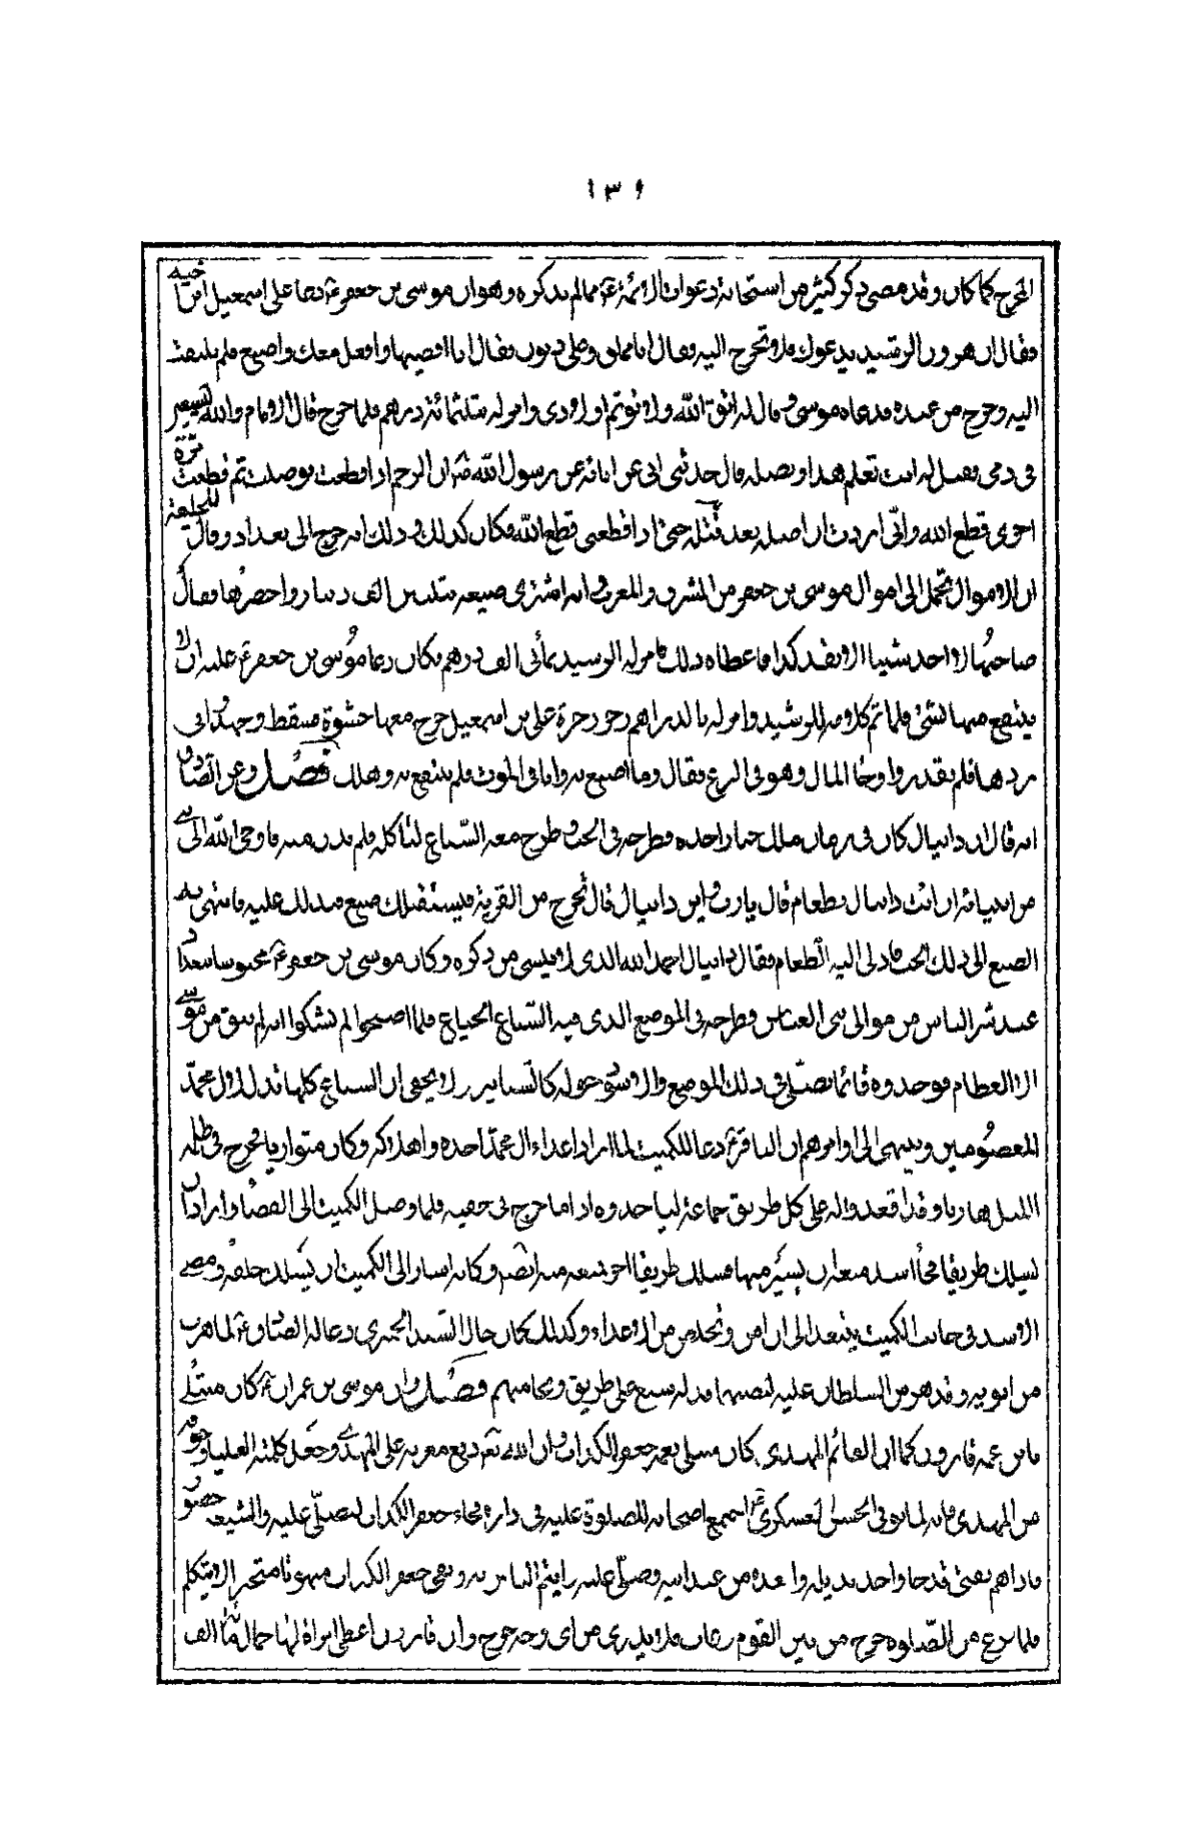 ١٣٩
كما كان وقد مضى ذكر كثير من استجابة دعوات الائمة ع مما لم نذكره وهو ان موسى بن جعفر ع دعا على اسمعيل ابن اخيه
فقال ان هرون الرشيد يدعوك فلا تخرج اليه فقال انا مملق وعلى ديون فقال انا اقضيها وافعل معك واصنع فلم يلتفت
اليه وخرج من عنده فدعاه موسى وقال له اتق الله ولا توتم اولادي وامر له بثلثمائة درهم فلما خرج قال الامام والله ليسعين
في دمى فقيل له انت تعلم هذا وتصله قال حدثني ابي عن ابائه عن رسول الله ان الرحم اذا قطعت فوصلت ثم قطعت مرة
اخرى قطع الله وانى اردت ان اصله بعد حتى اذا قطعنى قطع الله فكان كذلك وذلك انه خرج الى بغداد وقال للخليفة
ان الاموال تحمل الى اموال موسى بن جعفر من المشرق والمغرب وانه اشترى ضيعة بثلثين الف دينار واحضرها فقال
صاحبها لا اخذ شيئا الا نقد كذا فاعطاه ذلك فامر له الرشيد بمائى الف درهم فكان دعا موسى بن جعفر ع عليه ان لا
ينتفع منها بشئ فلما تم كلامه للرشيد وامر له بالدراهم على بن اسمعيل خرج معها حشوة فسقط وجهدوا فى
ردها فلم يقدروا وجا المال وهو فى النزع فقال وما اصنع به وانا في الموت فلم ينتفع به وهلك فصل وعن الصادق
انه قال ان دانيال كان في زمان ملك جبار اخذه فطرحه في الجب وطرح معه السباع لتاكله فلم تدن منه فاوحى الله الى نبى
من انبيائه ان ائت دانيال بطعام قال يا رب واين دانيال قال تخرج من القرية فيستقبلك ضبع فيدلك عليه فانتهى به
الضبع الى ذلك الجب فادلى اليه الطعام فقال دانيال الحمد لله الذى لا ينسى من ذكره وكان موسى بن جعفر ع محبوسا ببغداد
عند شر الناس من موالى بنى العباس فطرحه في الموضع الذى فيه السباع الجياع فلما اصبحوا لم يشكوا انه لم يبق من موسى
الا العظام فوجدوه قائما يصلى فى ذلك الموضع والاسود حوله كالسنانير ولا يخفى ان السباع كلها تذل لال محمد
المعصومين وينتهى الى اوامرهم ان الباقر ع دعا للكميت لما اراد اعداء ال محمد اخذه واهلاكه وكان متواريا فخرج فى ظلمة
الليل هاربا وقد اقعدوا له على كل طريق جماعة لياخذوه اذا ما خرج في خفية فلما وصل الكميت الى الفضاء واراد ان
يسلك طريقا فجاء اسد منعه ان يسير منها فسلك طريقا اخر فمنعه منه ايضا وكانه اشار الى الكميت ان يسلك خلفه ومضى
الاسد في جانب الكميت يتبعد الى ان امن وتخلص من الاعداء وكذلك كان حال السيد الحميرى دعا له الصادق ع لما هرب
من ابويه وقد هو من السلطان عليه لنصبهما فدله سبع على طريق ونجا منهم فصل وان موسى بن عمران ع كان مبتلى
بابن عمه قارون كما ان القائم المهدى كان مبتلى بعمه جعفر الكذاب وان الله تع دفع معرته على المهدى وجعل كلمته العليا وخوفه
من المهدى فانه لما توفى الحسن العسكرى ع اجتمع اصحابه للصلوة عليه فى داره فجاء جعفر الكذاب ليصلى عليه والشيعة حضور
فاذا هم بفتى قد جا واخذ بذيله واعده من عند ابيه وصلى عليه رايتم الناس به وبقى جعفر الكذاب مبهوتا متحيرا لا يتكلم
فلما فرغ من الصلوة خرج من بين القوم وغاب فلا يدرى من اى وجه خرج وان قارون اعطى امراة لها جمال مائة الف